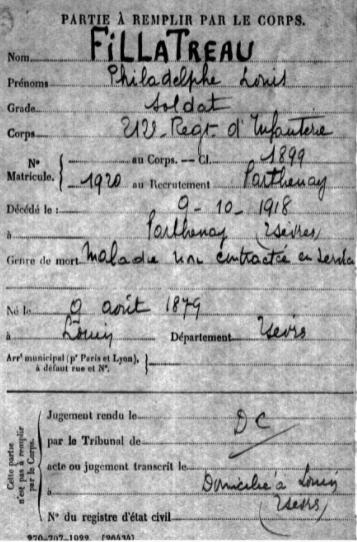 PARTIE À REMPLIR PAR LE CORPS.
Nom FiLLATREAU
Prénoms Philadelphe Louis
Grade Soldat
Corps 212e Regt d'Infanterie
N° Matricule. { au Corps. — Cl. 1899
1920 au Recrutement Parthenay
Décédé le : 9 - 10 - 1918
à Parthenay 2Sevres
Genre de mort Maladie non contractée en service
Né le 9 août 1879
à Louin Département 2Sevrs
Arrt municipal (pr Paris et Lyon), à défaut rue et N°.
Cette partie n'est pas à remplir par le Corps.
Jugement rendu le DC
par le Tribunal de
acte ou jugement transcrit le
à Domicilié à Louin
2Sevres
N° du registre d'état civil